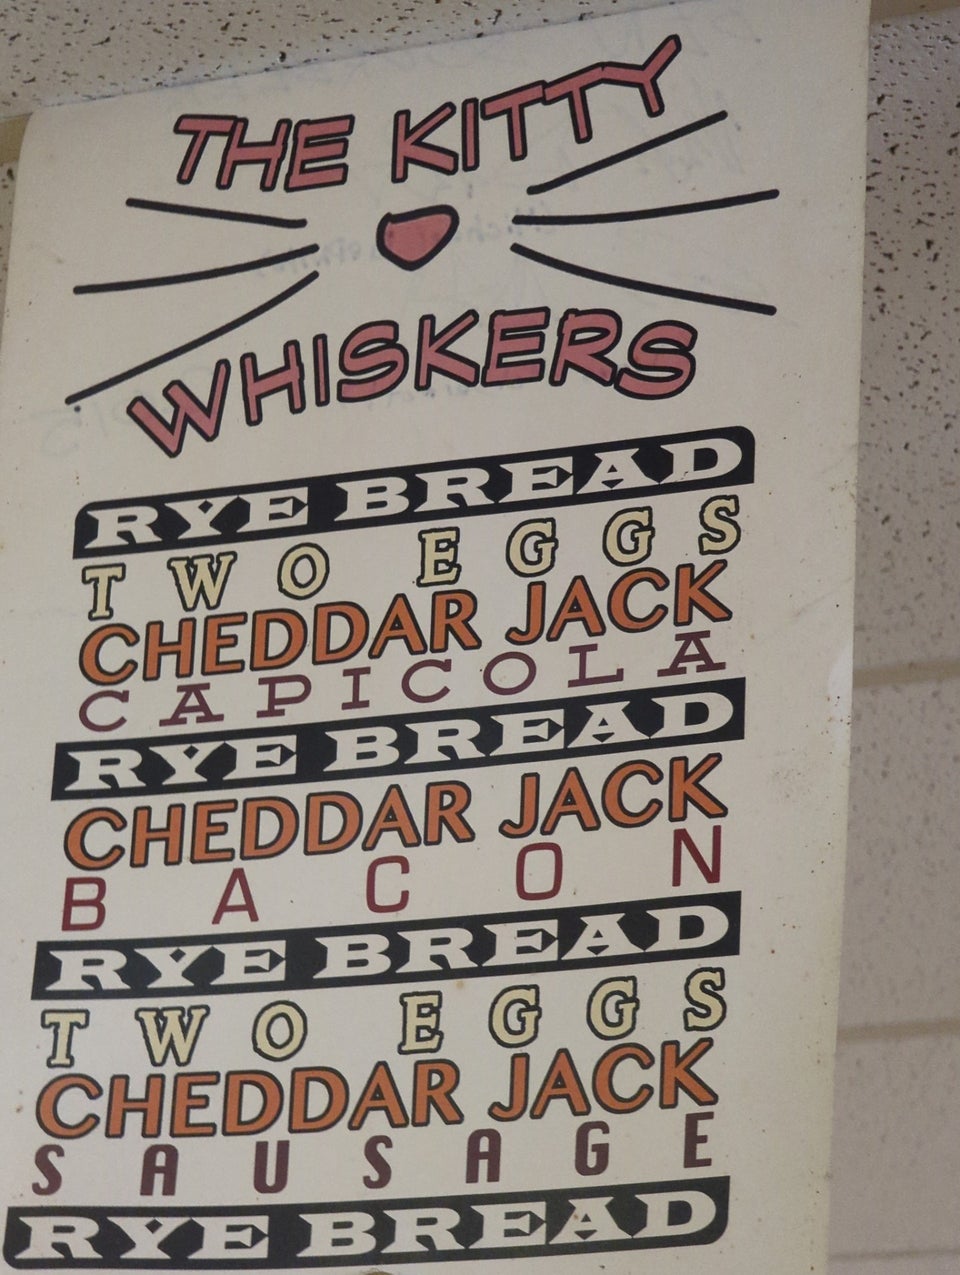 THE KITTY
WHISKERS
RYE BREAD
TWO EGGS
CHEDDAR JACK
CAPICOLA
RYE BREAD
CHEDDAR JACK
BACON
RYE BREAD
TWO EGGS
CHEDDAR JACK
SAUSAGE
RYE BREAD